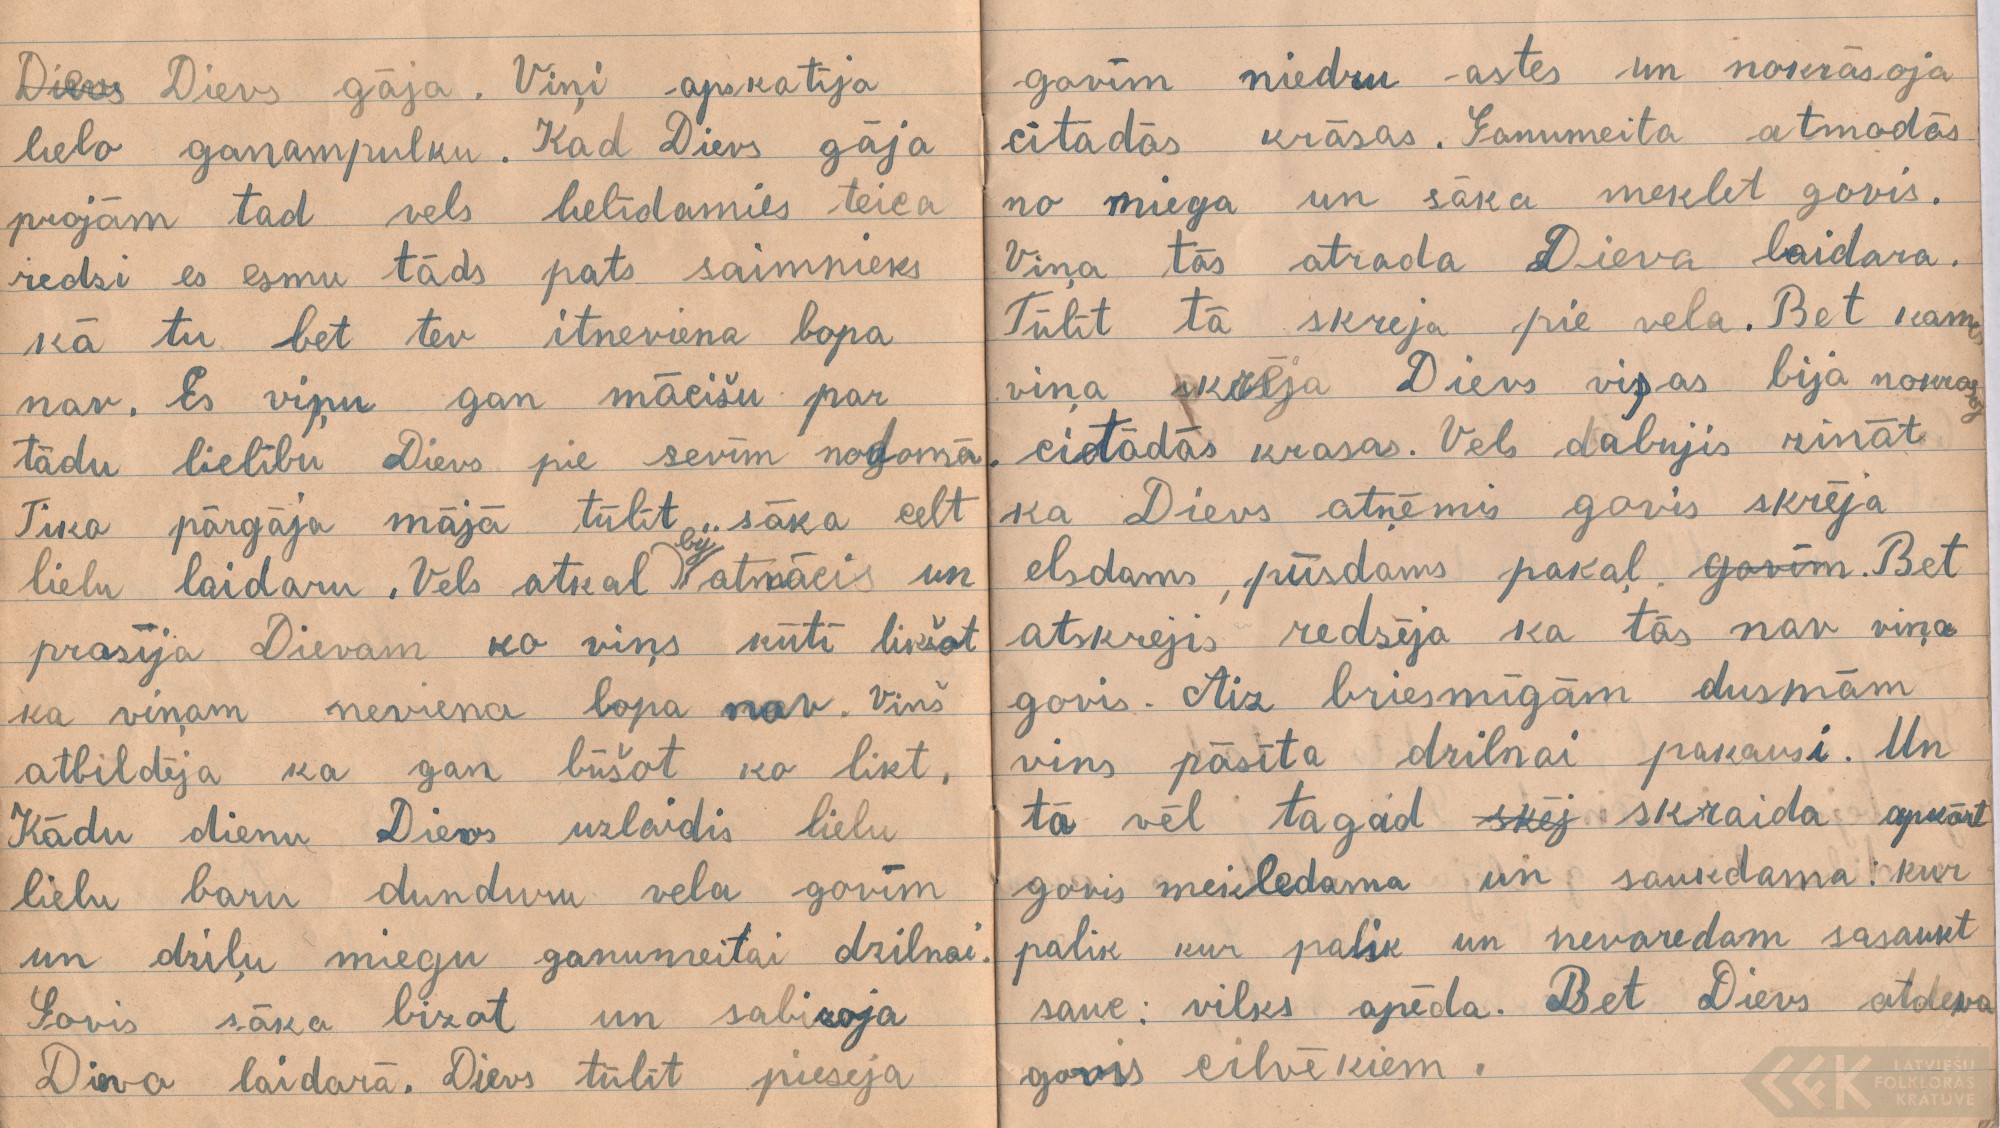 Dievs Dievs gāja. Viņi apskatīja
lielo ganampulku. Kad Dievs gāja
projām tad vels lielīdamies teica
redzi es esmu tāds pats saimnieks
kā tu bet tev itneviena lopa
nav. Es viņu gan mācišu par
tādu lielību Dievs pie sevīm nodomā.
Tika pārgāja mājā tūlīt sāka celt
lielu laidaru. Vels atkal bij atnācis un
prasīja Dievam ko viņs kūtī likšot
ka viņam neviena lopa nav. Viņš
atbildēja ka gan būšot ko likt.
Kādu dienu Dievs uzlaidis lielu
lielu baru dunduru vela govīm
un dziļu miegu ganumeitai dzilnai.
Govis sāka bizot un sabizoja
Dieva laidarā. Dievs tūlīt pieseja
govīm niedru astes un nokrāsoja
citādās krāsas. Ganumeita atmodās
no miega un sāka meklet govis.
Viņa tās atrada Dieva laidara.
Tūlīt tā skreja pie vela. Bet kamēs
viņa skrēja Dievs viņas bija nokrasoj
cietādās krasas. Vels dabujis zināt
ka Dievs atņēmis govis skrēja
elsdams, pūsdams pakaļ govīm. Bet
atskrejis redzēja ka tās nav viņa
govis. Aiz briesmīgām dusmām
vins pāsita dzilnai pakausi. Un
tā vēl tagad skēj skraida apkārt
govis mekledama un saukdama: kur
palik kur palik un nevaredam sasaukt
sauc: vilks apēda. Bet Dievs atdeva
govis cilvēkiem.
LATVIEŠU
FOLKLORAS
KRĀTUVE